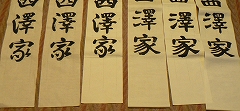 西澤家
西澤家
西澤家
西澤家
西澤家
西澤家